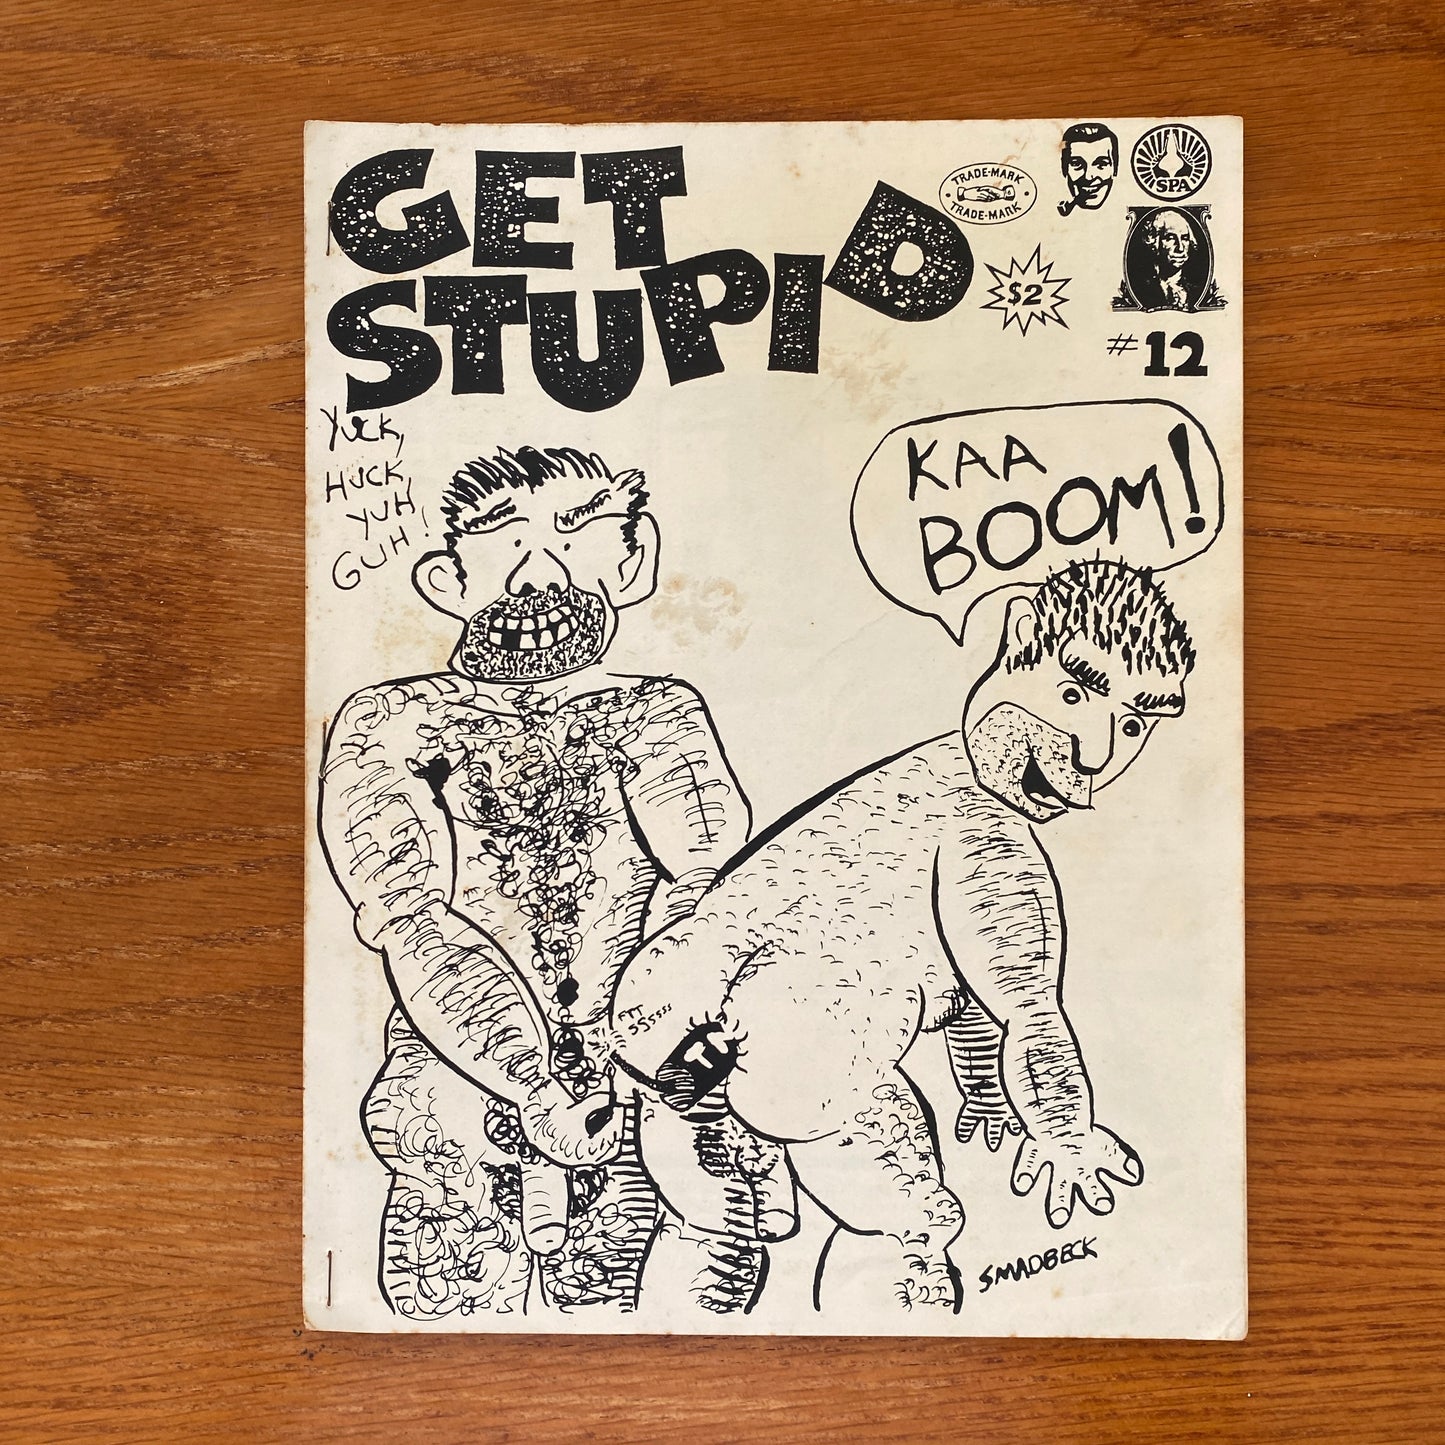 GET
STUPID
TRADE-MARK
TRADE-MARK
SPA
$2
#12
YUCK,
HUCK,
YUH
GUH!
KAA
BOOM!
FTT
SSSSSS
SMADBECK